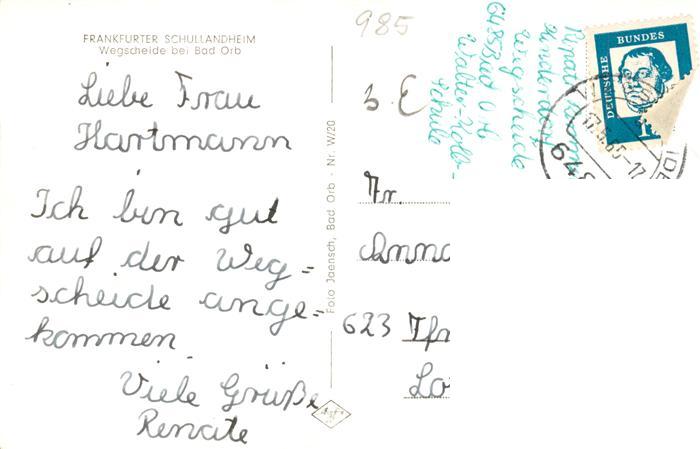 FRANKFURTER SCHULLANDHEIM
Wegscheide bei Bad Orb
Liebe Frau
Hartmann
Ich bin gut
auf der Weg=
scheide ange=
kommen
Viele Grüße
Renate
Foto Jaensch, Bad Orb - Nr. W/20
Agfa
985
Kinderdorf
Wegscheide
6485 Bad Orb
Walter-Kolb-
Schule
DEUTSCHE BUNDES
Fr.
Anna
623
Lo